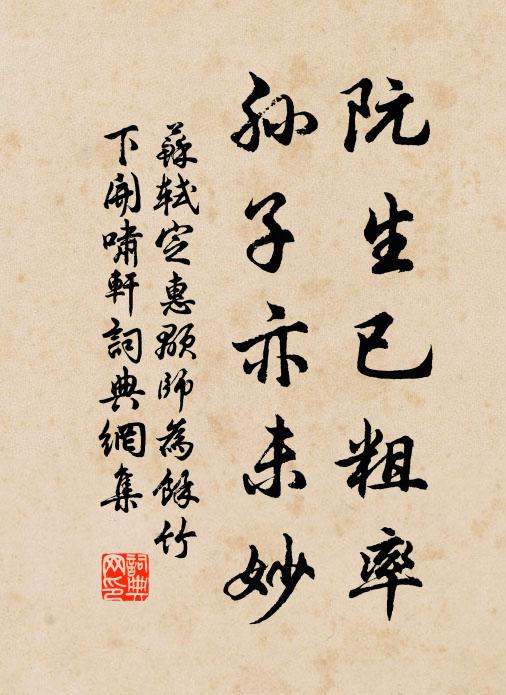 阮生已粗率
孫子亦未妙
蘇軾定惠顒師為餘竹
下開嘯軒詞典網集
詞典
网印